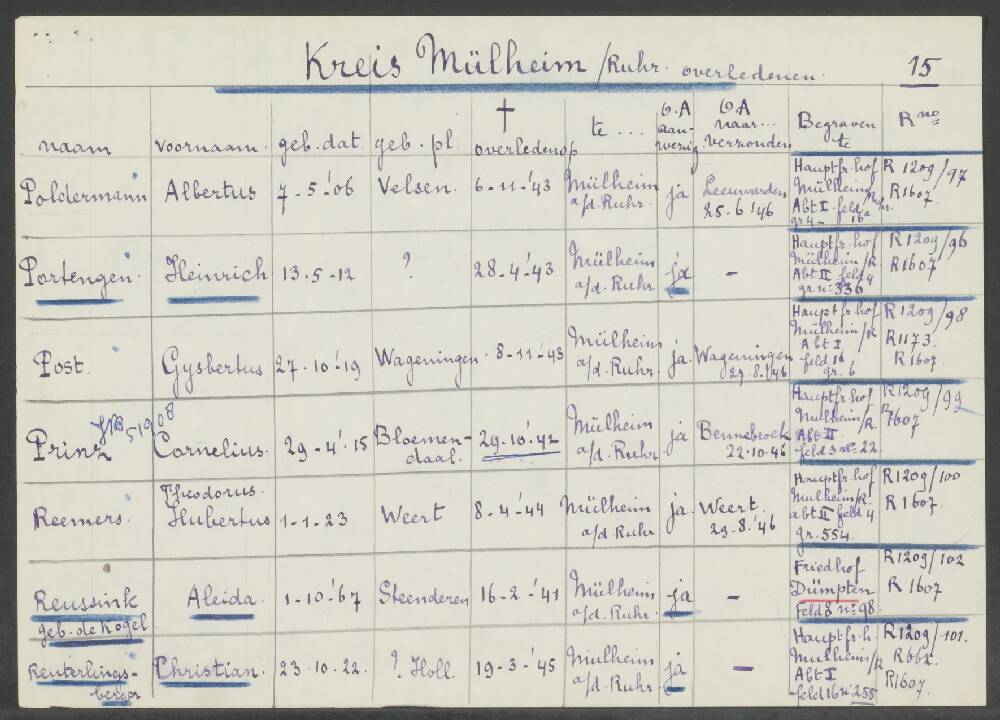 Kreis Mülheim /Ruhr. overledenen. 15
naam voornaam. geb. dat. geb. pl † overleden op te ... O.A aan- wezig O.A naar... verzonden Begraven te R no
Poldermann Albertus 7-5-'06 Velsen. 6-11-'43 Mülheim a/d. Ruhr. ja Leeuwarden 25.6.'46 Hauptfr. hof Mülheim/Ruhr. Abt I. feld 16a gr 4 - R 1209/97 R1607.
Portengen. Heinrich 13.5-12 ? 28-4-'43 Mülheim a/d. Ruhr. ja - Hauptfr. hof Mülheim/R Abt II feld 4 gr no 336 R 1209/96 R1607
Post. Gysbertus 27-10-'19 Wageningen. 8-11-'43 Mülheim a/d. Ruhr. ja. Wageningen 29.8.'46 Hauptfr. hof Mülheim/R Abt I. feld 16 gr. 6 R 1209/98 R1173. R 1607.
Prinz 51908 Cornelius. 29-4'-15 Bloemen- daal. 29-10-'42 Mülheim a/d. Ruhr. ja Bennebroek 22.10.46 Hauptfr hof Mulheim/R Abt II. feld 3 no 22. R1209/99 R1607
Reemers. Theodorus. Hubertus 1-1-23 Weert 8-4-'44 Mülheim a/d. Ruhr. ja. Weert. 29-8.'46 Hauptfr. hof Mulheim/R. abt II feld 4. gr. 554. R1209/100 R1607.
Reussink geb. de Kogel Aleida. 1-10-'67 Steenderen 16-2-'41 Mülheim a/d. Ruhr. ja - Friedhof Dümpten Feld 8 no 98. R1209/102 R 1607
Reuterlings- berger Christian. 23.10.22. ? Holl. 19-3-'45 Mulheim a/d. Ruhr. ja - Hauptfr. h. Mulheim/R Abt I feld 16 no 258 R1209/101. R662. R1607.